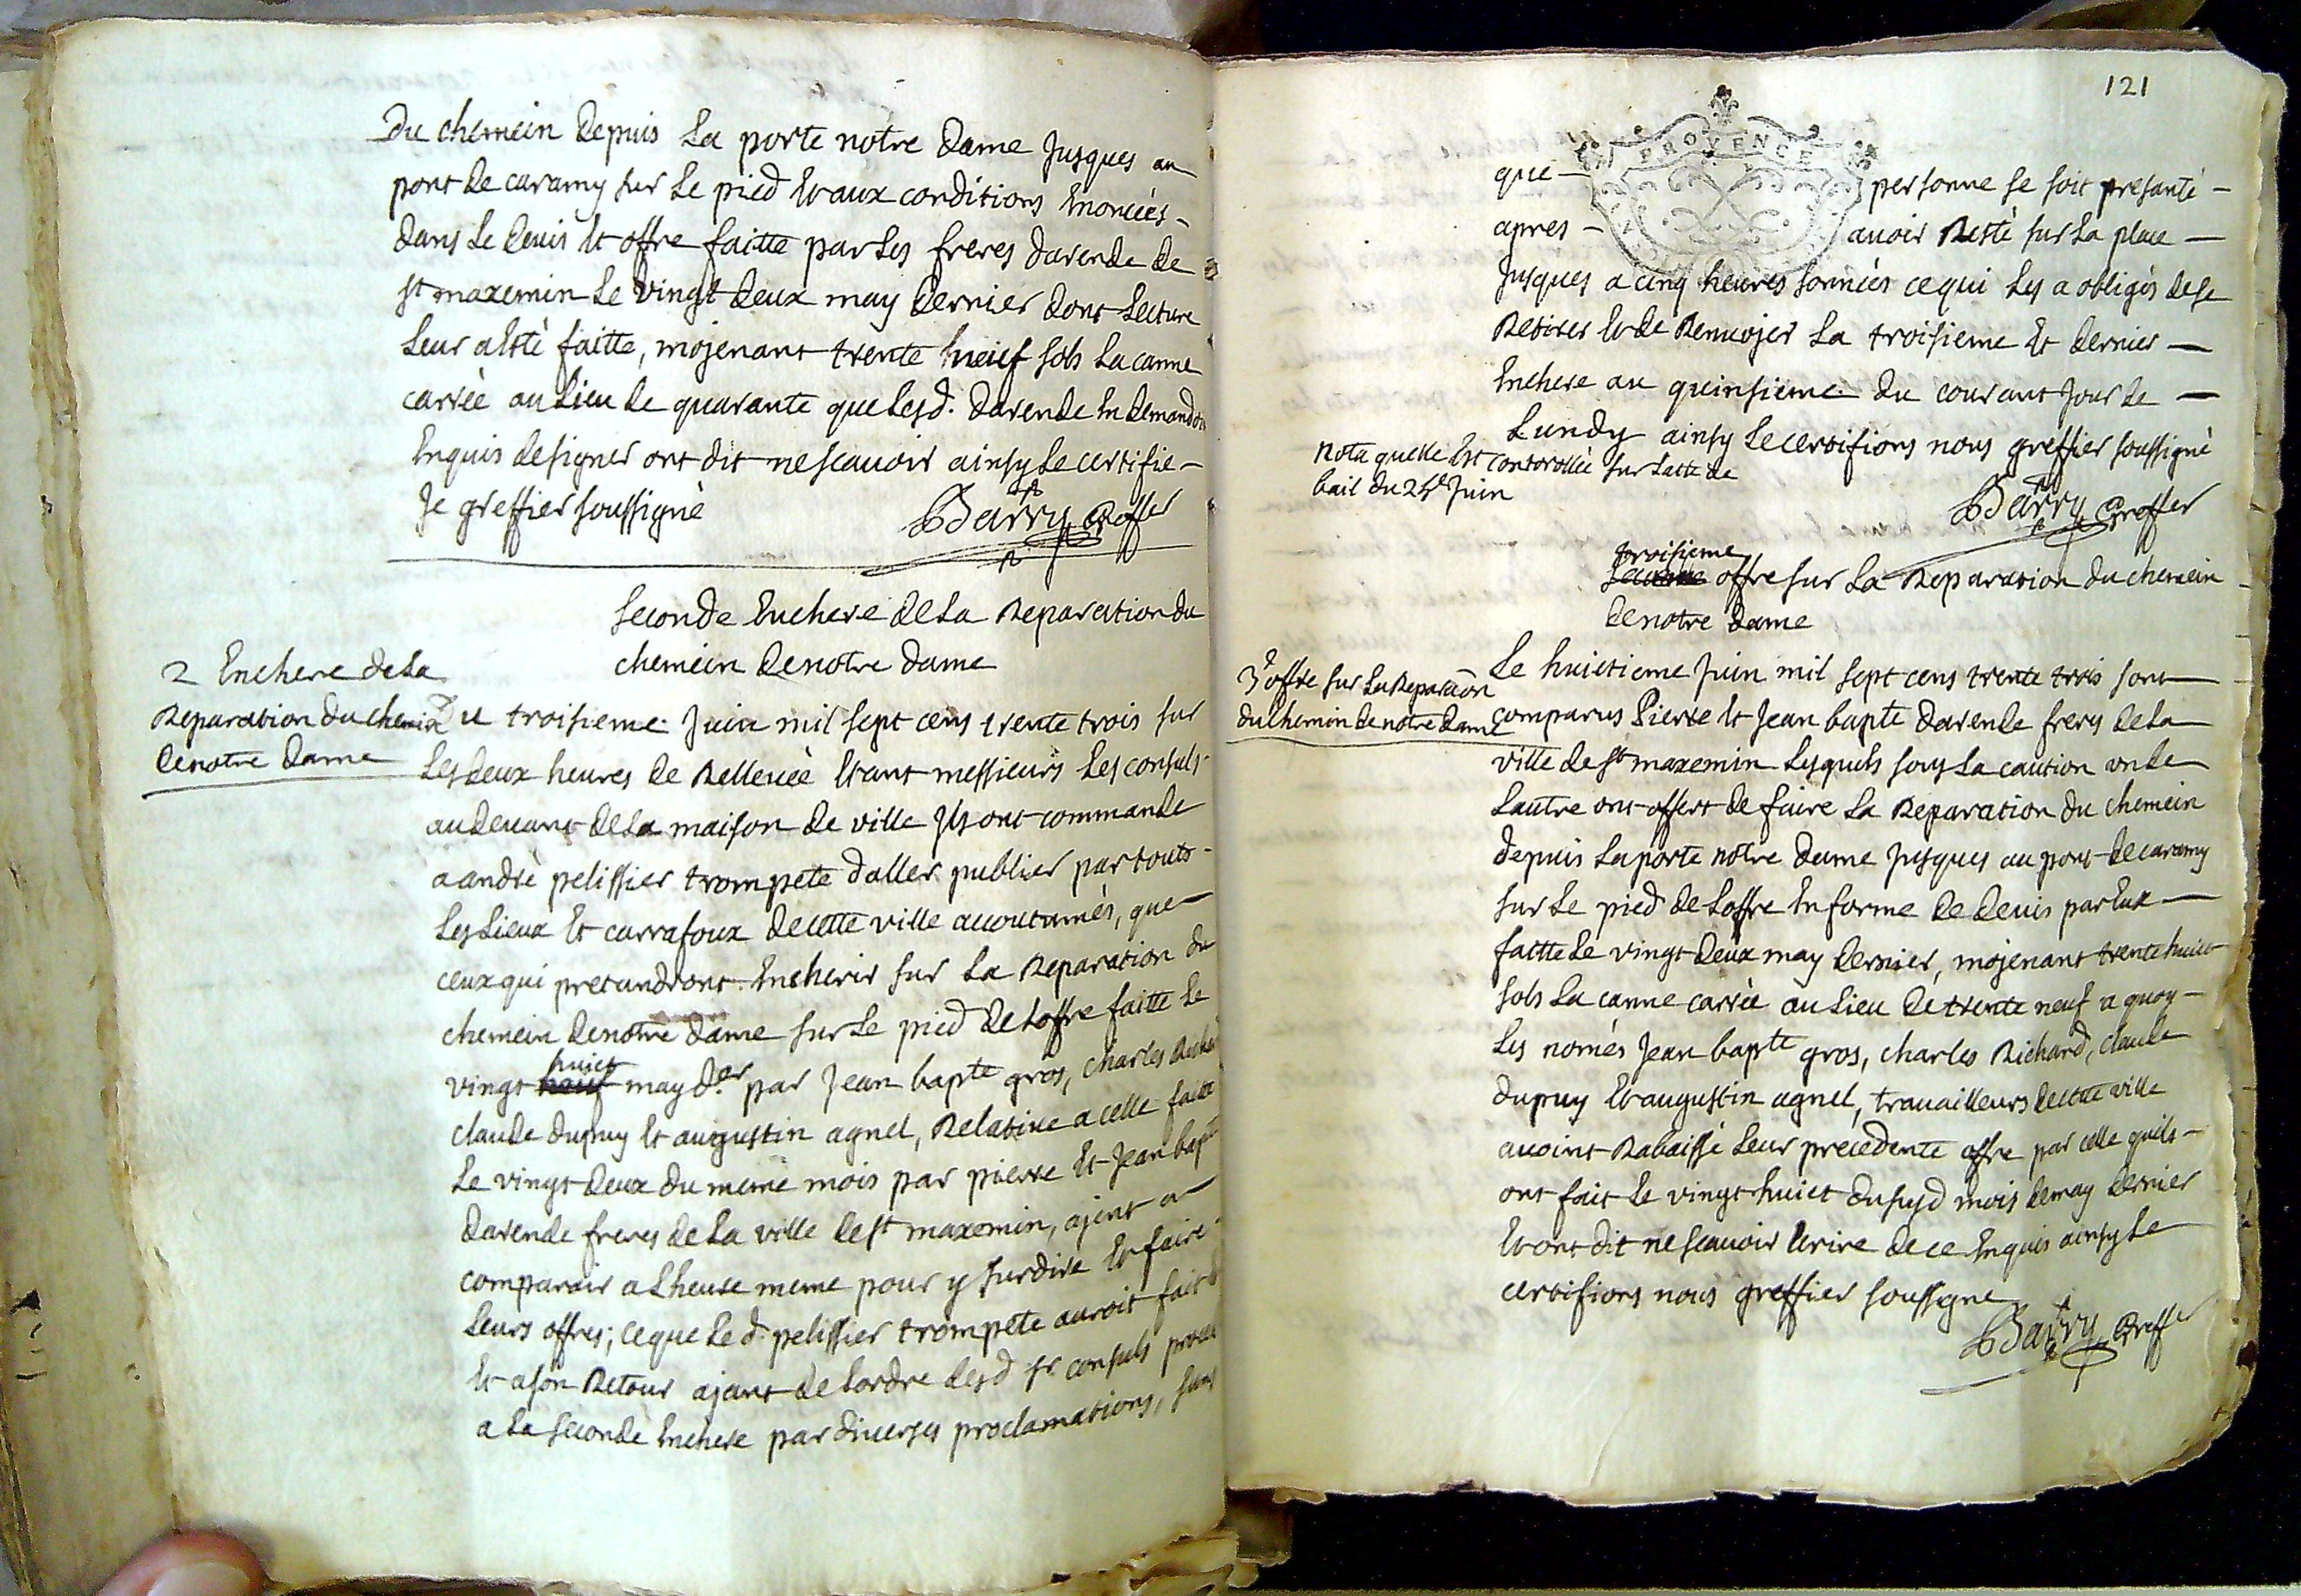 du chemein depuis La porte notre dame jusques au
pont de caramy sur Le pied et aux conditions énoncées
dans Le deuis et offre faitte par Les freres darende de
st maxemin Le vingt deux may dernier dont Lecture
Leur a esté faitte, mojenant trente neuf sols La canne
carrée au Lieu de quarante que Lesd. darende en demandoi
Enquis de signer ont dit ne scauoir ainsy Le certifie
Je greffier soussigné
Barry Greffier
seconde Enchere de La Reparation du
chemein de notre dame
2 Enchere de La
Reparation du chemin
de notre dame
Du troisieme juin mil sept cens trente trois sur
Les deux heures de Releuée Etant messieurs Les consuls
au deuant de La maison de ville Ils ont commande
a andré pelissier trompete daller publier par touts
Les Lieux et carrafoux de cette ville accoutumés, que
ceux qui pretandront Encherir sur La Reparation du
chemein de notre dame sur Le pied de Loffre faitte Le
huict
vingt neuf may der. par Jean bapte gros, charles Richar
claude dupuy et augustin agnel, Relatiue a celle faitte
Le vingt deux du meme mois par pierre et Jean bapte
darende freres de La ville de st maxemin, ajent a
comparoir a Lheure meme pour y surdire et faire
Leurs offres; ce que Le d. pelissier trompete auroit fait
Et a son Retour ajant de Lordre desd srs consuls procedé
a La seconde Enchere par diuerses proclamations, sans
121
PROVENCE
que personne se soit presanté
apres auoir Resté sur La place
jusques a cinq heures sonnées ce qui Les a obligés de se
Retirer et de Renuojer La troisieme et dernier
Enchere au quinsieme du courant jour de
Lundy ainsy Le certifions nous greffier soussigné
Nota quelle Est contorollée sur Lacte de
bail du 24e juin
Barry Greffier
troisieme
seconde offre sur La Reparation du chemein
de notre dame
3e offre sur La Reparaōn
du chemin de notre dame
Le huictieme juin mil sept cens trente trois sont
comparus Pierre et Jean bapte darende freres de La
ville de st maxemin Lesquels sous La caution un de
Lautre ont offert de faire La Reparation du chemein
depuis La porte notre dame jusques au pont de caramy
sur Le pied de Loffre en forme de deuis par Eux
faitte Le vingt deux may dernier, mojenant trente huict
sols La canne carrée au Lieu de trente neuf a quoy
Les només Jean bapte gros, charles Richard, claude
dupuy et augustin agnel, trauailleurs de cette ville
auoint Rabaissé Leur précedente offre par celle quils
ont fait Le vingt huict du susd mois de may dernier
Et ont dit ne scauoir Ecrire de ce Enquis ainsy Le
certifions nous greffier soussigne
Barry Greffier